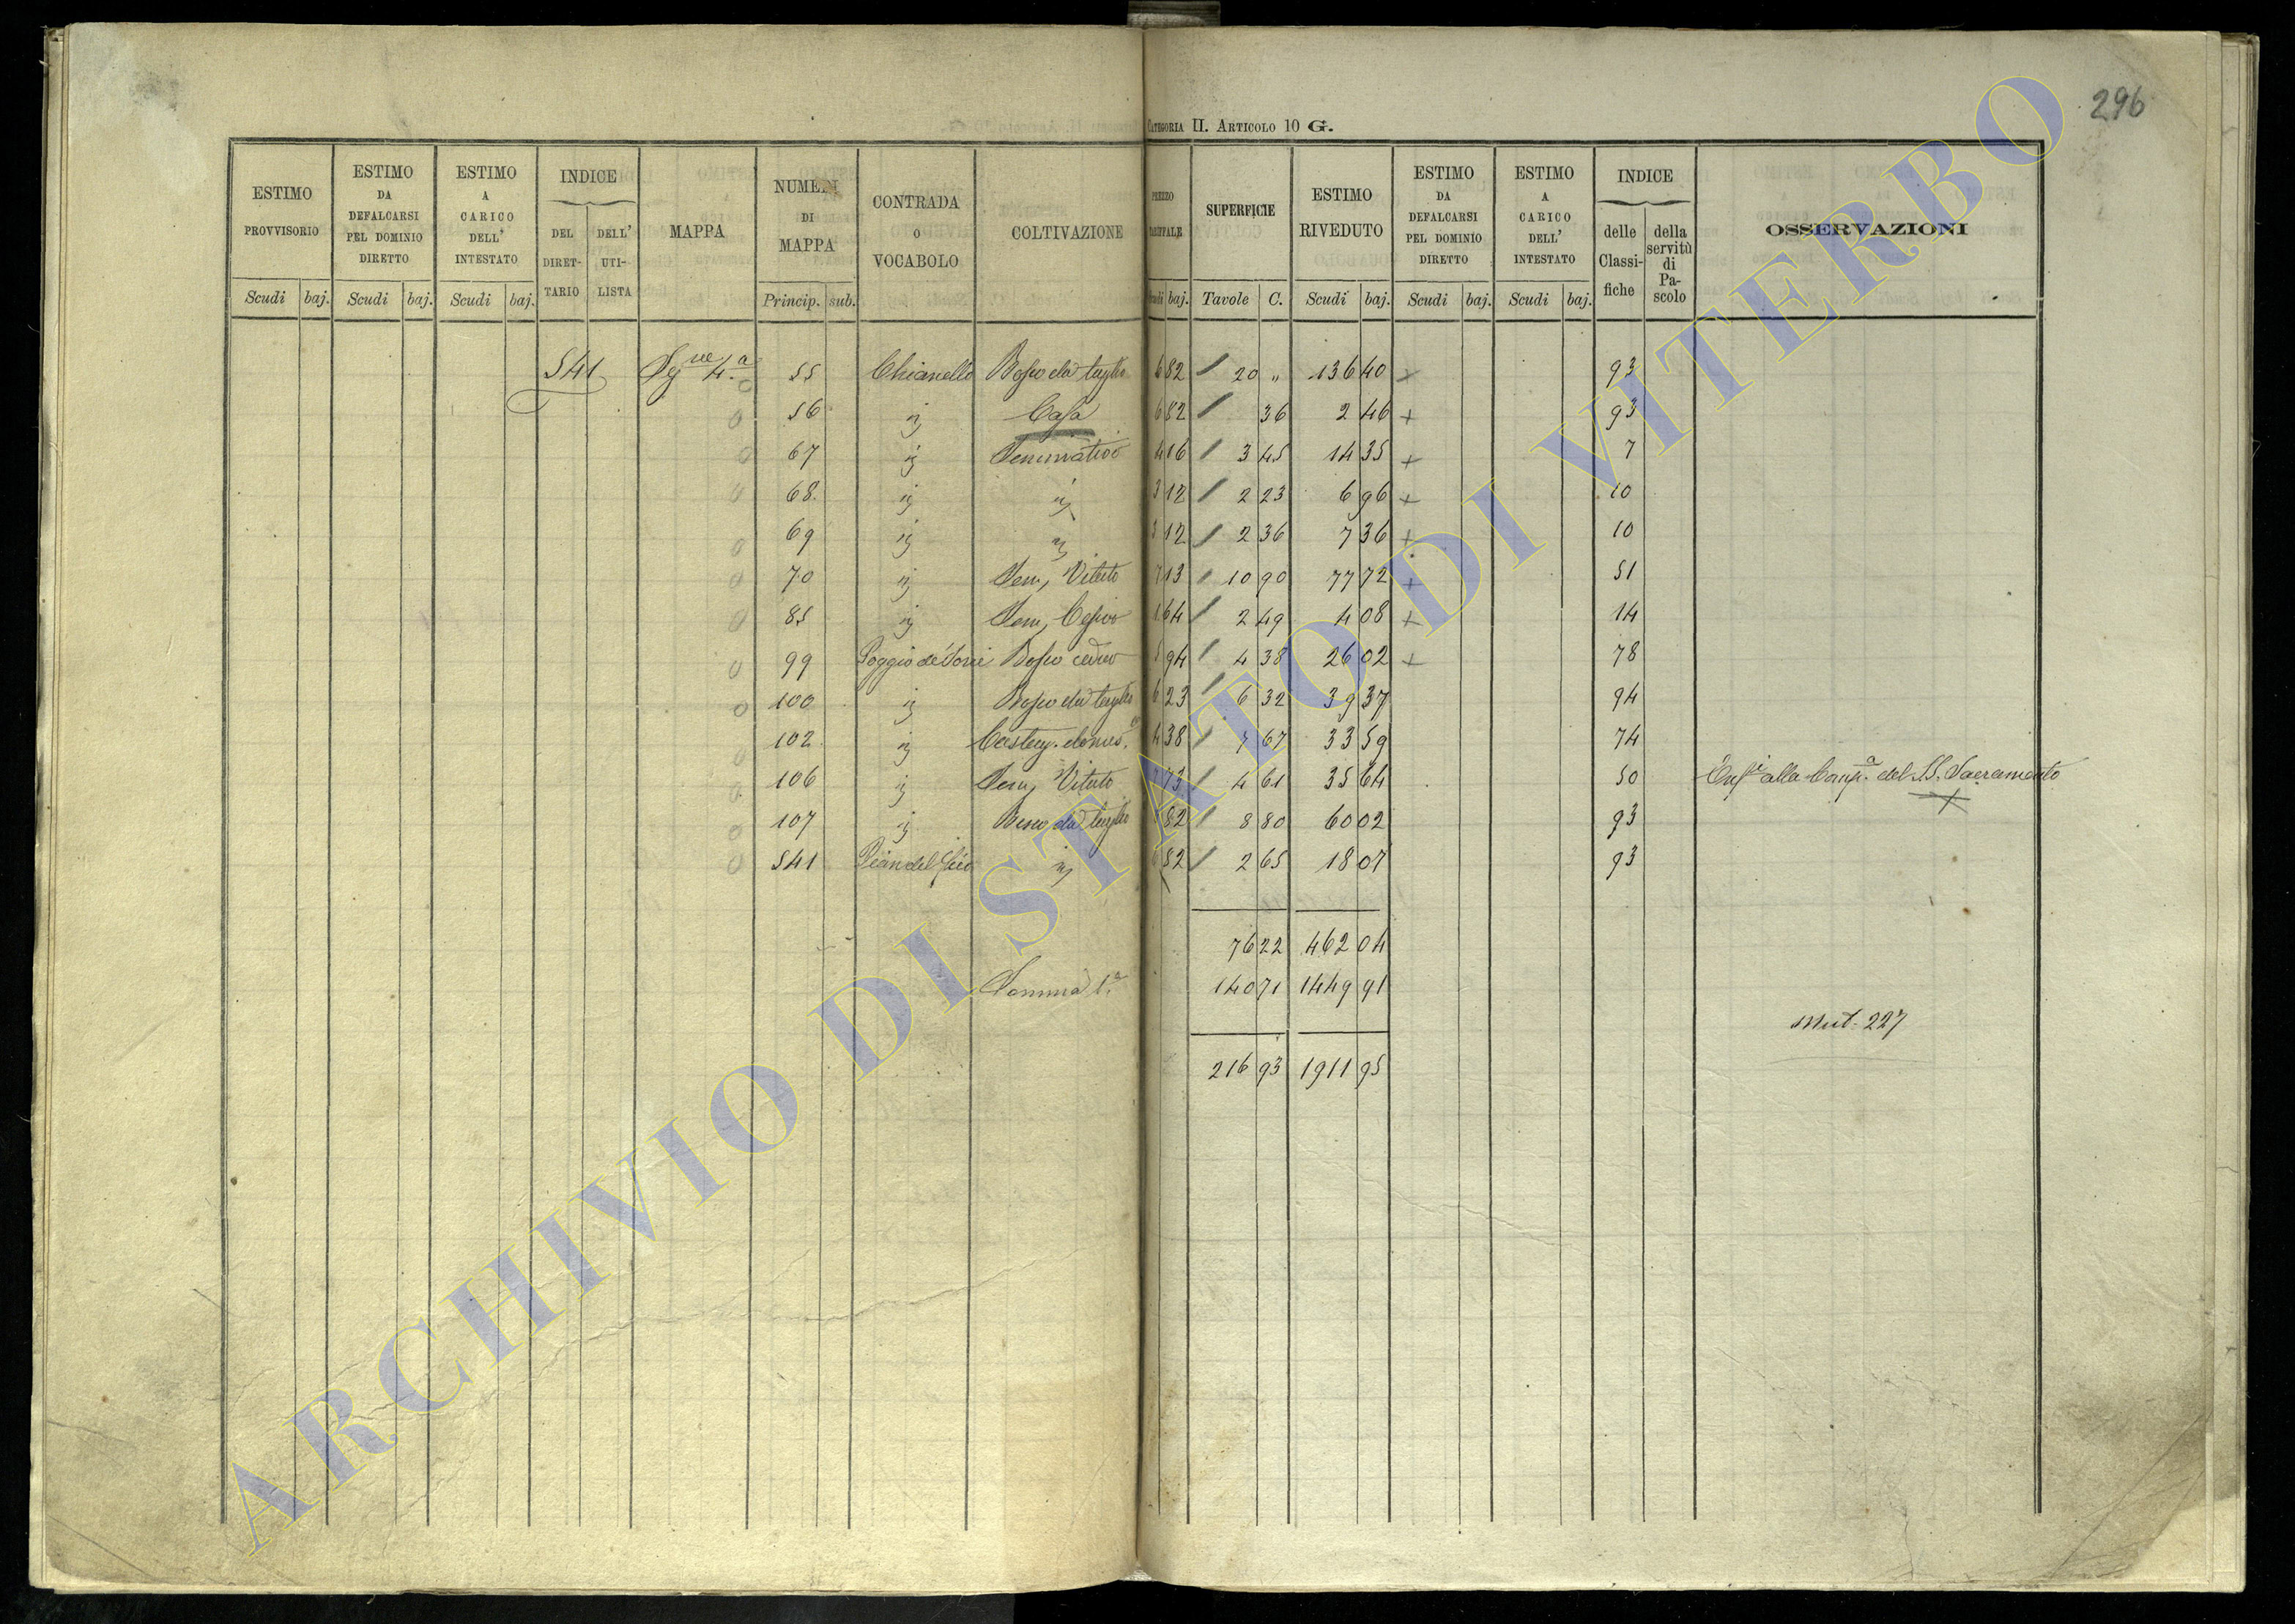 296
CATEGORIA II. ARTICOLO 10 G.
ESTIMO PROVVISORIO Scudi baj.
ESTIMO DA DEFALCARSI PEL DOMINIO DIRETTO Scudi baj.
ESTIMO A CARICO DELL' INTESTATO Scudi baj.
INDICE DEL DIRETTARIO DELL' UTILISTA
MAPPA
NUMERI DI MAPPA Princip. sub.
CONTRADA O VOCABOLO
COLTIVAZIONE
PREZZO Scudi baj.
SUPERFICIE Tavole C.
ESTIMO RIVEDUTO Scudi baj.
ESTIMO DA DEFALCARSI PEL DOMINIO DIRETTO Scudi baj.
ESTIMO A CARICO DELL' INTESTATO Scudi baj.
INDICE delle Classifiche della servitù di Pascolo
OSSERVAZIONI
541 55 Chianello Bosco da taglio 6 82 20 " 136 40 + 93
0 56 " Casa 6 82 36 2 46 + 93
0 67 " Seminativo 4 16 3 45 14 35 + 7
0 68 " " 3 12 2 23 6 96 + 10
0 69 " " 3 12 2 36 7 36 + 10
0 70 " Sem, Vitato 7 13 10 90 77 72 + 51
0 85 " Sem, 1 64 2 49 4 08 + 14
0 99 Poggio de Bosco ceduo 5 94 4 38 26 02 + 78
0 100 " Bosco da taglio 6 23 6 32 39 37 94
0 102 " 4 38 7 67 33 59 74
0 106 " Sem, Vitato 7 73 4 61 35 64 50 alla Comp.a del SS. Sacramento
0 107 " Bosco da taglio 6 82 8 80 60 02 93
0 541 Pian del " 6 82 2 65 18 07 93
76 22 462 04
Somma 1.a 140 71 1449 91
Mut. 227
216 93 1911 95
ARCHIVIO DI STATO DI VITERBO